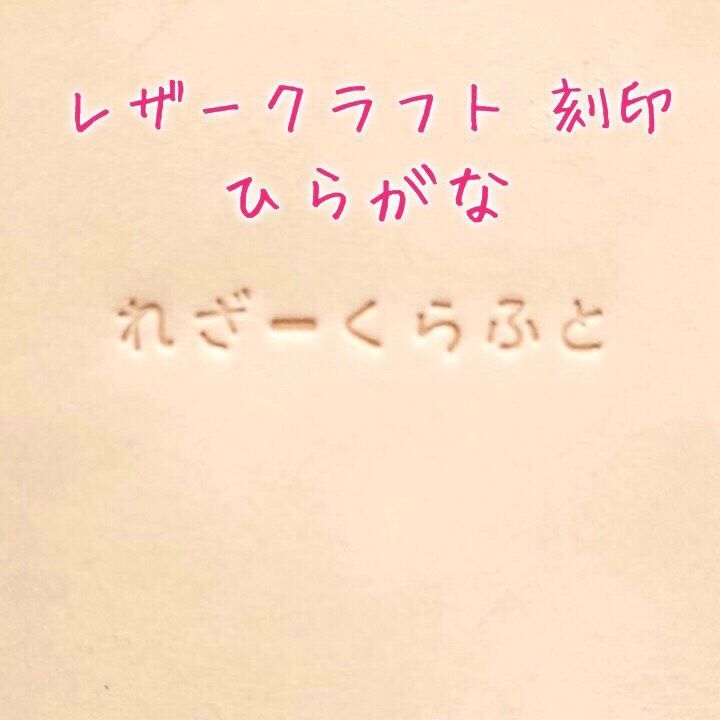 レザークラフト 刻印
ひらがな
れざーくらふと